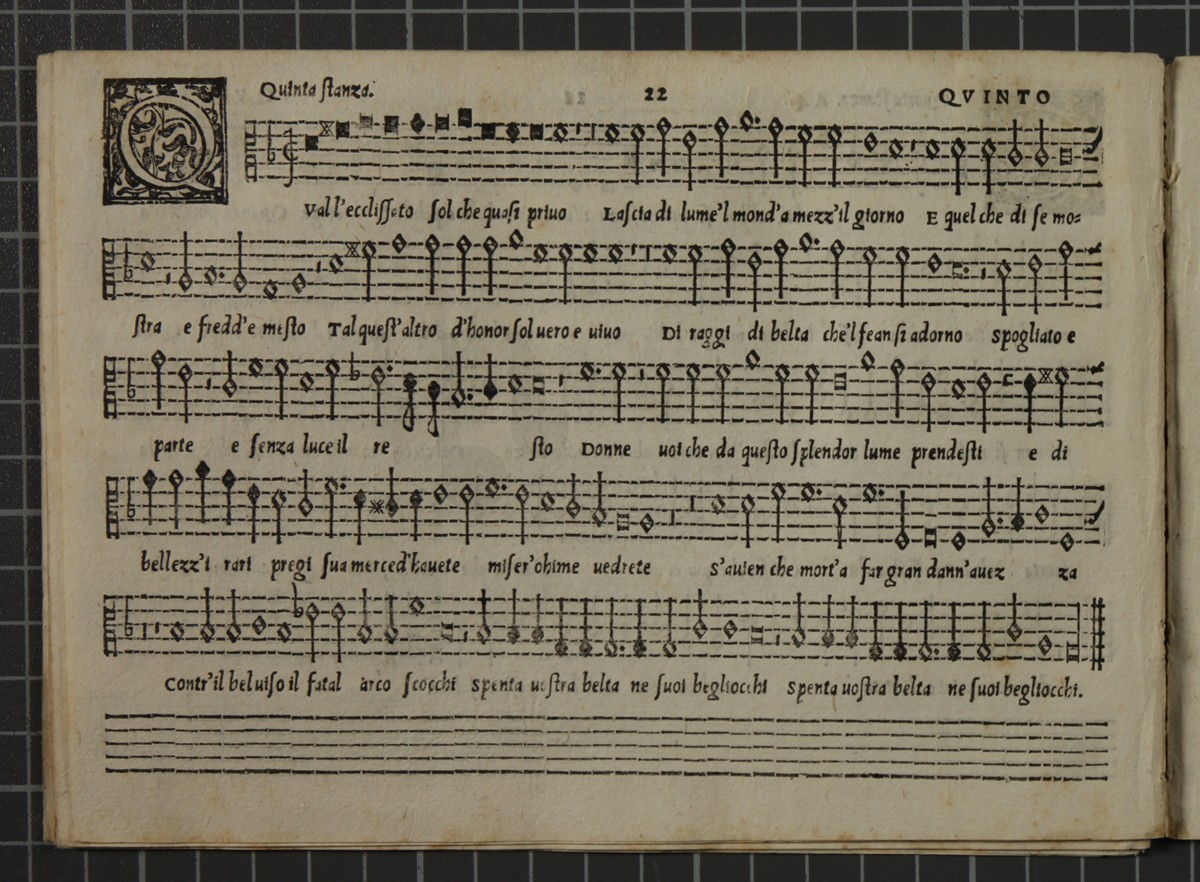 Quinta ſtanza. 22 QVINTO
QVal l'eccliſſato ſol che quaſi priuo Laſcia di lume'l mond'a mezz'il giorno E quel che di ſe mo=
ſtra e fredd'e meſto Tal queſt'altro d'honor ſol uero e uiuo Di raggi di belta che'l fean ſi adorno Spogliato e
parte e ſenza luce il re ſto Donne uoi che da queſto ſplendor lume prendeſti e di
bellezz'i rari pregi ſua merced'hauete miſer'ohime uedrete S'auien che mort'a far gran dann'auez za
Contr'il bel uiſo il fatal arco ſcocchi Spenta uoſtra belta ne ſuoi begliocchi Spenta uoſtra belta ne ſuoi begliocchi.